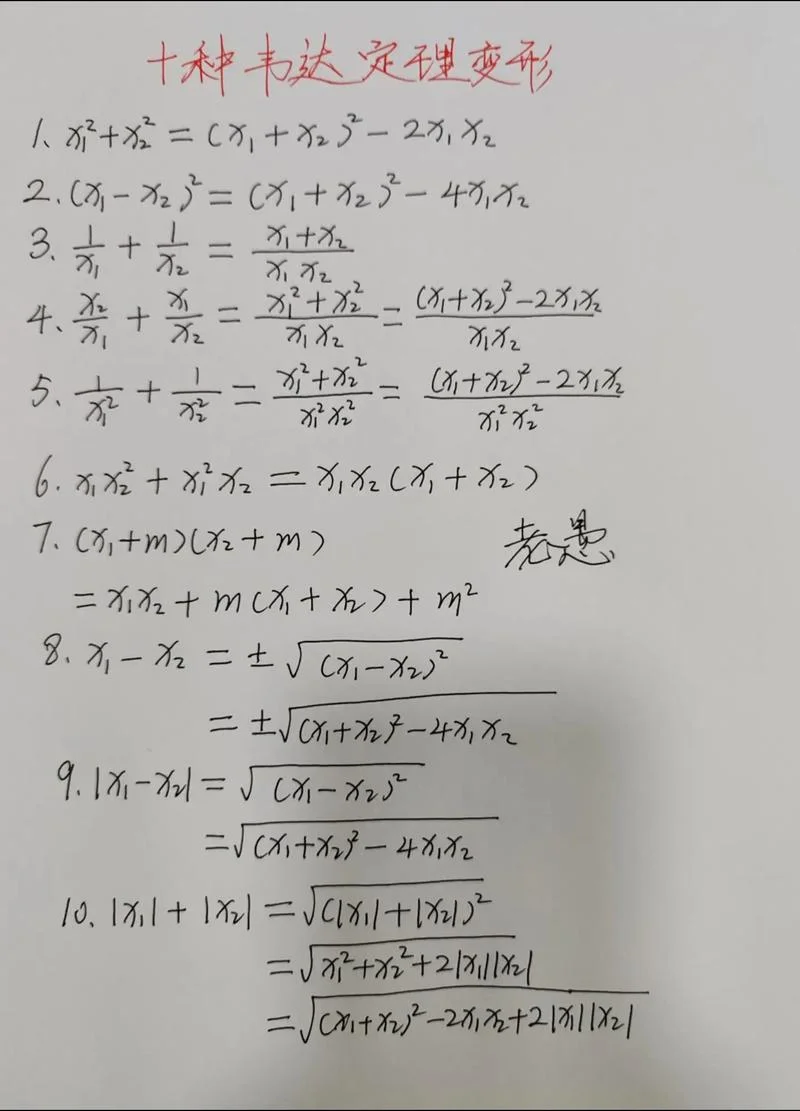 十种韦达定理变形
1. x₁²+x₂² = (x₁+x₂)²-2x₁x₂
2. (x₁-x₂)² = (x₁+x₂)²-4x₁x₂
3. 1/x₁ + 1/x₂ = (x₁+x₂)/(x₁x₂)
4. x₂/x₁ + x₁/x₂ = (x₁²+x₂²)/(x₁x₂) = ((x₁+x₂)²-2x₁x₂)/(x₁x₂)
5. 1/x₁² + 1/x₂² = (x₁²+x₂²)/(x₁²x₂²) = ((x₁+x₂)²-2x₁x₂)/(x₁²x₂²)
6. x₁x₂²+x₁²x₂ = x₁x₂(x₁+x₂)
7. (x₁+m)(x₂+m)
老愚
= x₁x₂+m(x₁+x₂)+m²
8. x₁-x₂ = ±√((x₁-x₂)²)
= ±√((x₁+x₂)²-4x₁x₂)
9. |x₁-x₂| = √((x₁-x₂)²)
= √((x₁+x₂)²-4x₁x₂)
10. |x₁|+|x₂| = √((|x₁|+|x₂|)²)
= √(x₁²+x₂²+2|x₁||x₂|)
= √((x₁+x₂)²-2x₁x₂+2|x₁||x₂|)